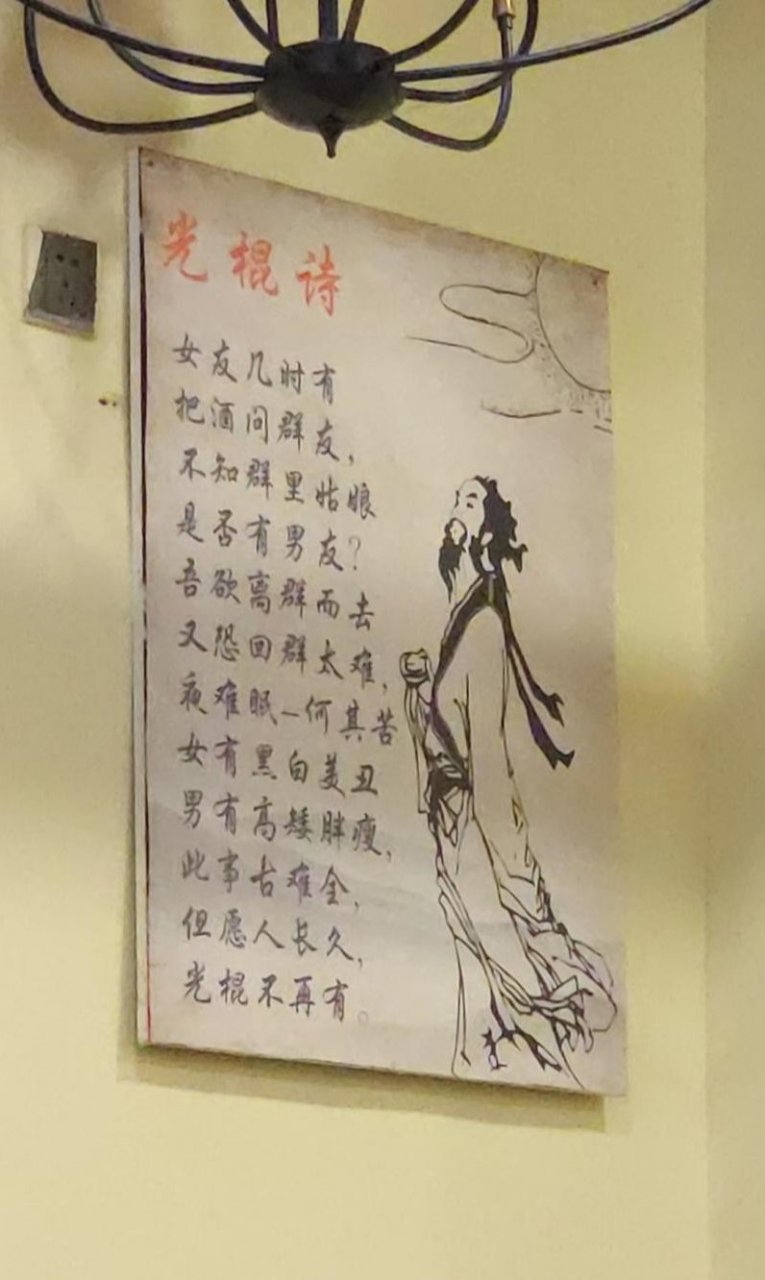 光棍诗
女友几时有
把酒问群友，
不知群里姑娘
是否有男友？
吾欲离群而去
又恐回群太难，
夜难眠一何其苦
女有黑白美丑
男有高矮胖瘦，
此事古难全，
但愿人长久，
光棍不再有。